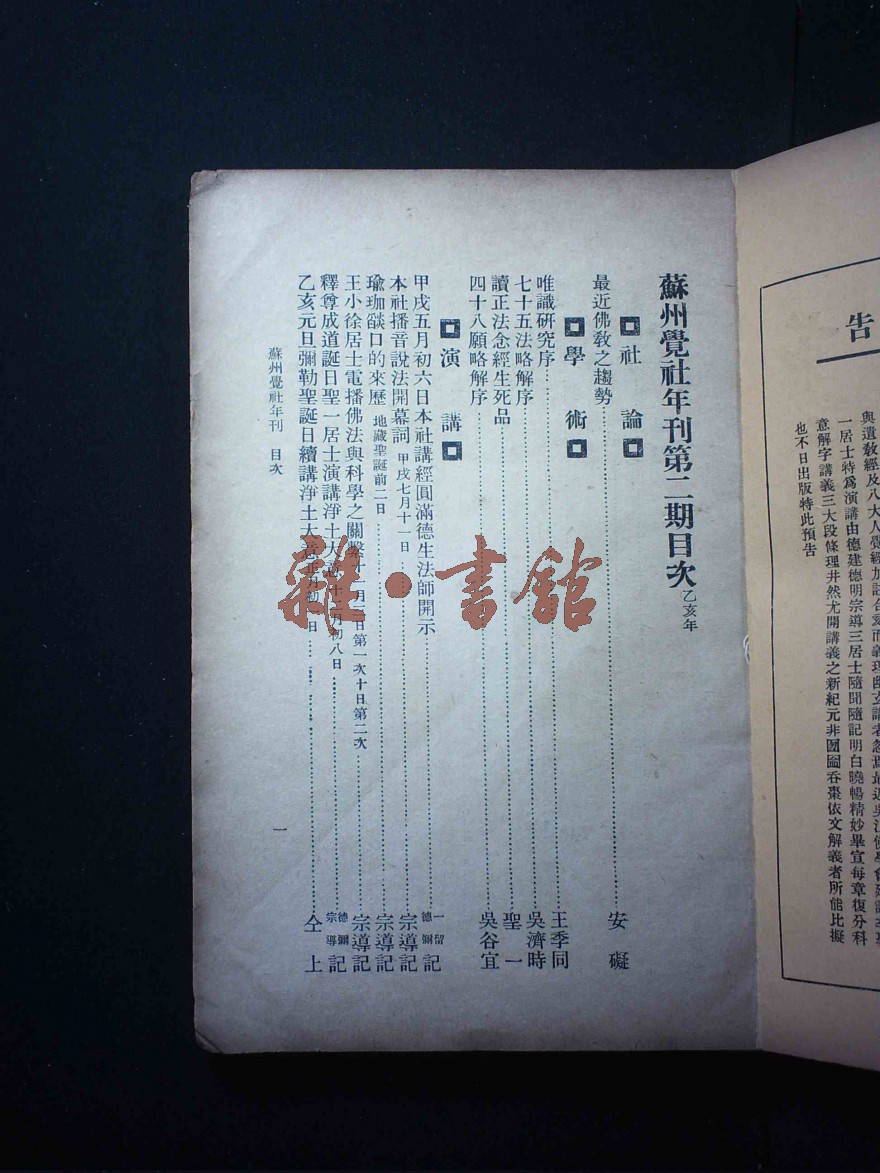 告
與遺敎經及八大人覺經加註合
一居士特爲演講由德建德明宗導三居士隨聞隨記明白曉暢精妙畢宣每章復分科
意解字講義三大段條理井然尤開講義之新紀元非囫圇吞棗依文解義者所能比擬
也不日出版特此預告
蘇州覺社年刊第二期目次 乙亥年
社論
最近佛敎之趨勢 安礙
學術
唯識研究序 王季同
七十五法略解序 吳濟時
讀正法念經生死品 聖一
四十八願略解序 吳谷宜
演講
甲戌五月初六日本社講經圓滿德生法師開示 德彌記
本社播音說法開幕詞 甲戌七月十一日 宗導記
瑜珈燄口的來歷 地藏聖誕前二日 宗導記
王小徐居士電播佛法與科學之關繫 十一月二日第一次十日第二次 宗導記
釋尊成道誕日聖一居士演講淨土大意 十二月初八日 德彌宗導記
乙亥元旦彌勒聖誕日續講淨土大意 正月初一日 仝上
蘇州覺社年刊 目次
一
雜·書館